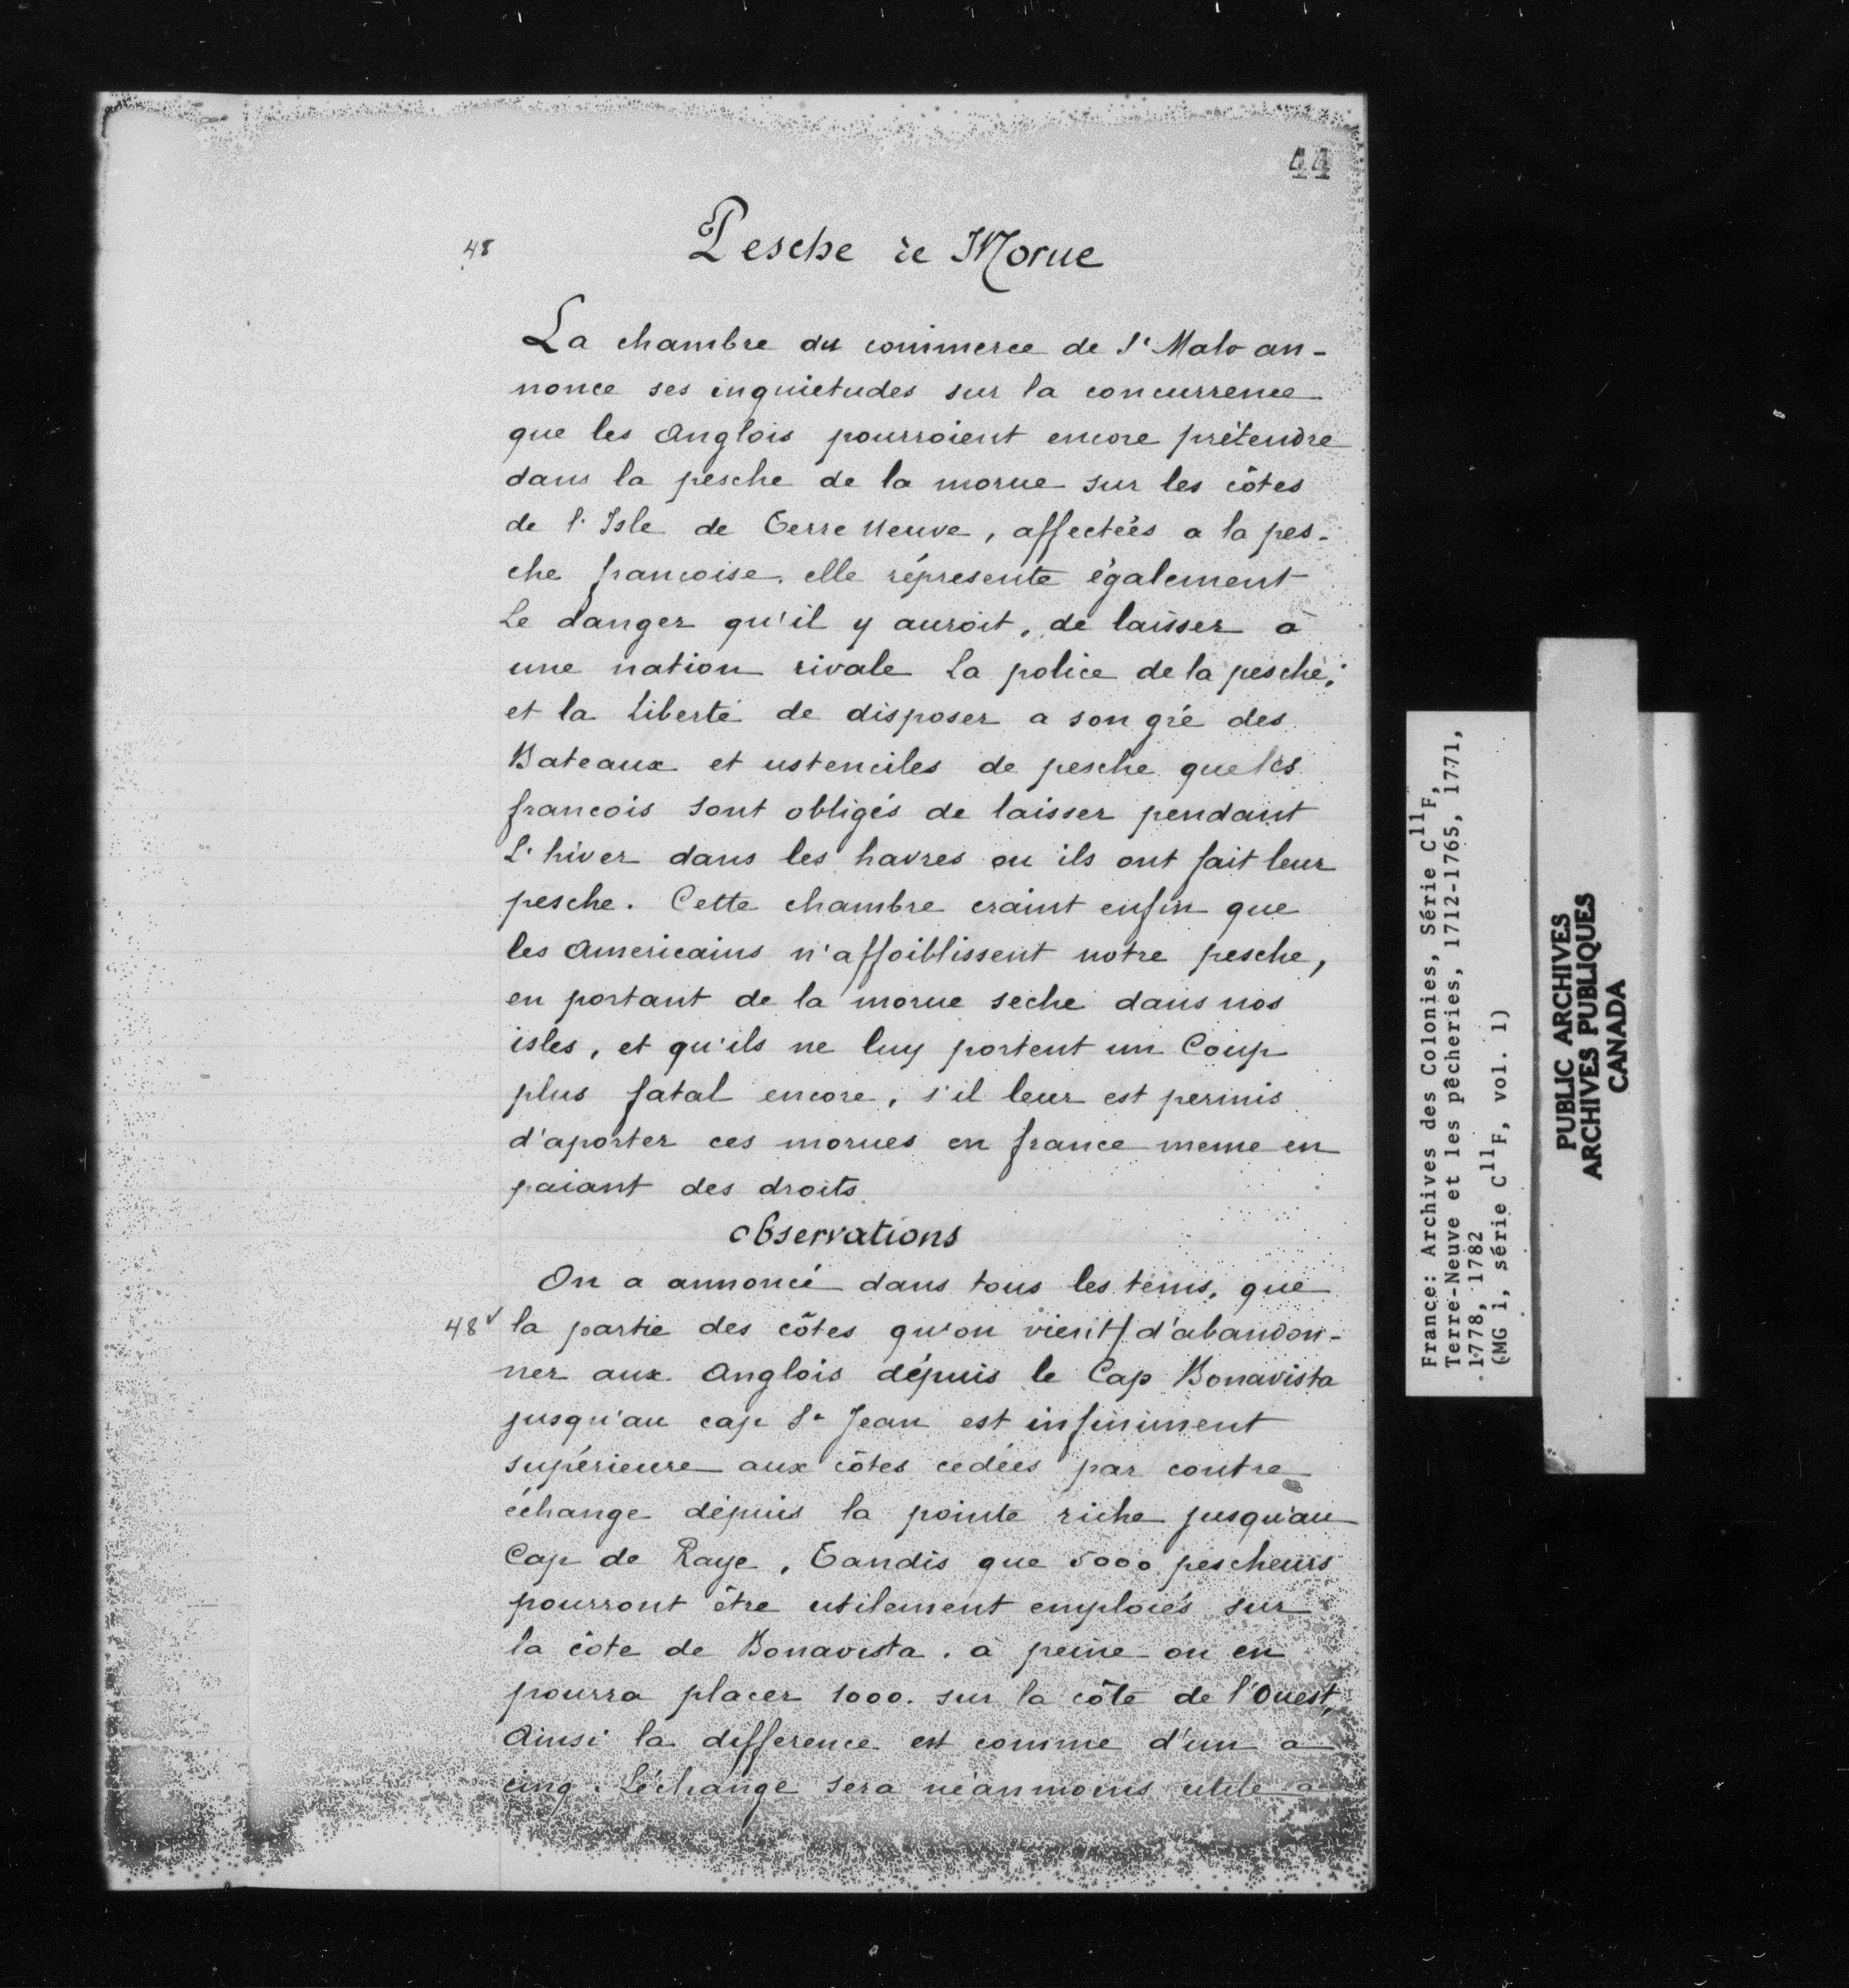 44
48
Pesche de Morue
La chambre du commerce de St Malo an-
nonce ses inquietudes sur la concurrence
que les Anglois pourroient encore prétendre
dans la pesche de la morue sur les côtes
de l'Isle de Terre Neuve, affectées a la pes-
che françoise. elle répresente également
Le danger qu'il y auroit, de laisser à
une nation rivale La police de la pesche;
et la Liberté de disposer a son gré des
Bateaux et ustenciles de pesche que les
francois sont obligés de laisser pendant
L'hiver dans les havres ou ils ont fait leur
pesche. Cette chambre craint enfin que
les Americains n'affoiblissent notre pesche,
en portant de la morue seche dans nos
isles, et qu'ils ne luy portent un Coup
plus fatal encore, s'il leur est permis
d'aporter ces morues en france meme en
paiant des droits.
Observations
On a annoncé dans tous les tems, que
48v la partie des côtes qu'on vient/ d'abandon-
ner aux Anglois dépuis le Cap Bonavista
jusqu'au cap St Jean est infiniment
supérieure aux côtes cedées par contre
échange dépuis la pointe riche jusqu'au
Cap de Raye, Tandis que 5000 pescheurs
pourront être utilement emploiés sur
la côte de Bonavista. à peine on en
pourra placer 1000. sur la côte de l'Ouest,
Ainsi la difference est comme d'un a
cinq. L'échange sera néanmoins utile a
France: Archives des Colonies, Série C11F,
Terre-Neuve et les pêcheries, 1712-1765, 1771,
1778, 1782
(MG 1, série C11F, vol. 1)
PUBLIC ARCHIVES
ARCHIVES PUBLIQUES
CANADA